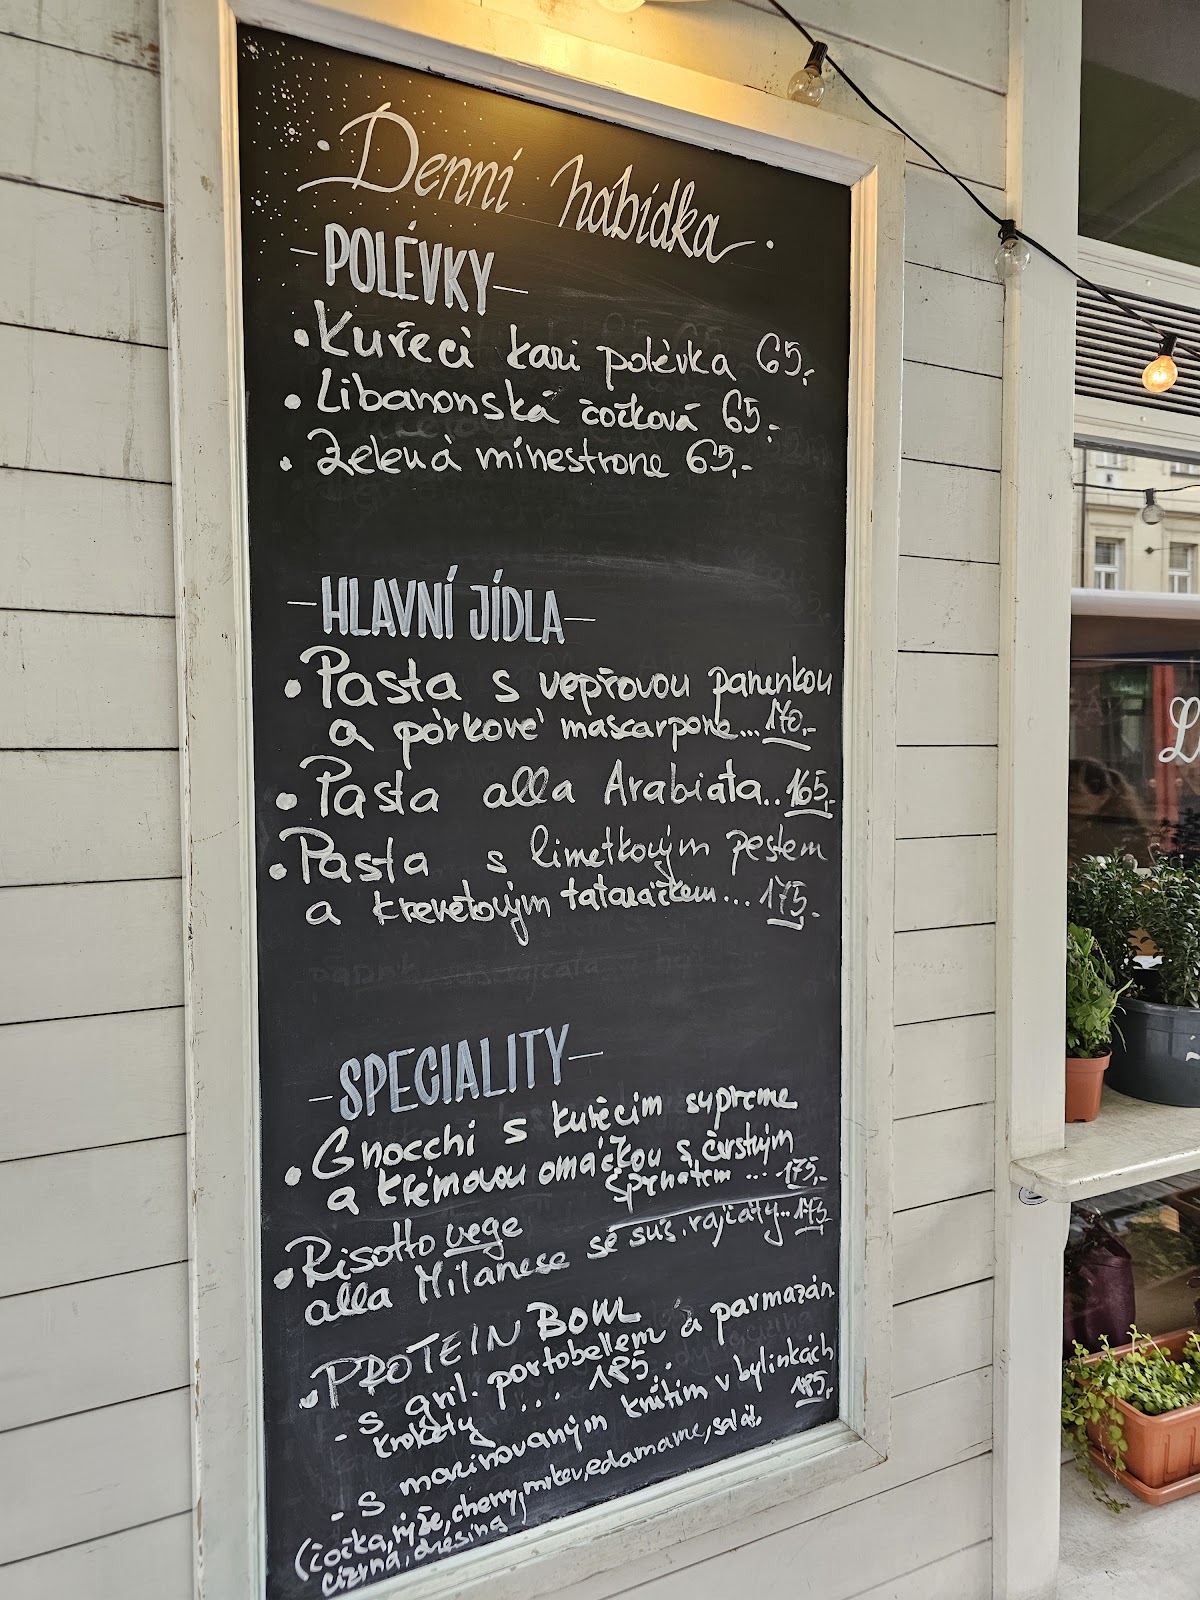 Denní nabídka
POLÉVKY
Kuřecí kari polévka 65,-
Libanonská čočková 65,-
Zelená minestrone 65,-
HLAVNÍ JÍDLA
Pasta s vepřovou panenkou
a pórkové mascarpone... 170,-
Pasta alla Arabiata.. 165,-
Pasta s limetkovým pestem
a krevetovým tataráčkem... 175,-
SPECIALITY
Gnocchi s kuřecím supreme
a krémovou omáčkou s čerstvým
špenátem ... 175,-
Risotto vege
alla Milanese se suš. rajčaty... 175
PROTEIN BOWL
- s gril. portobellem a parmazán
krokety ... 185.
- s marinovaným krůtím v bylinkách
185,-
(čočka, rýže, cherry, mrkev, edamame, salát,
cizrna, dresing